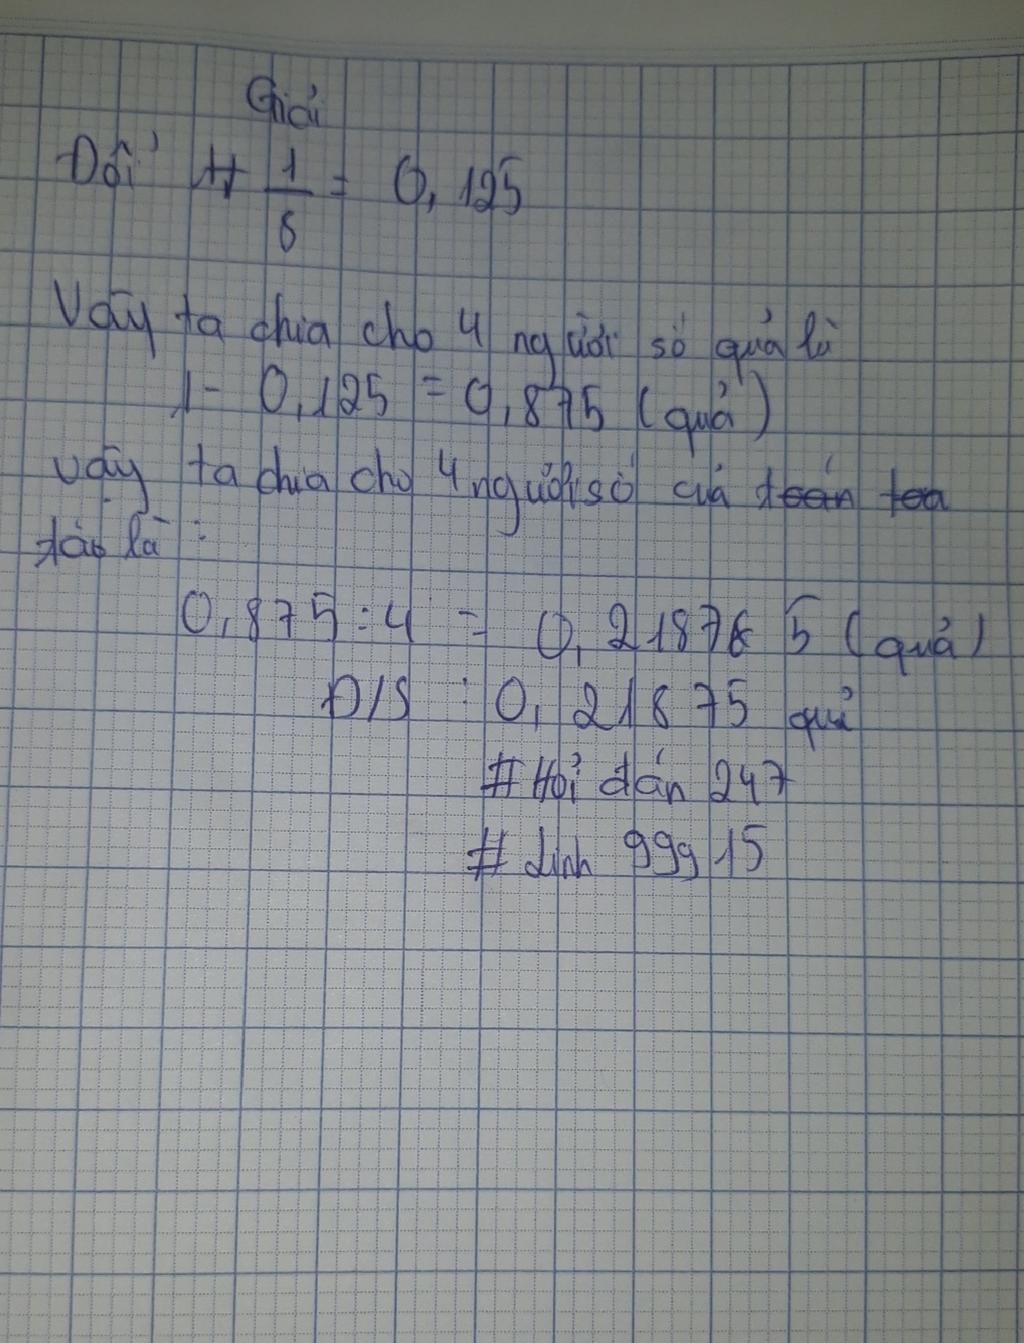 Giải
Đổi 1/8 = 0,125
Vậy ta chia cho 4 người số quả là
1 - 0,125 = 0,875 (quả)
Vậy ta chia cho 4 người số quả
táo là :
0,875 : 4 = 0,21875 (quả)
Đ/S : 0,21875 quả
# Hỏi đán 247
# Linh 99915